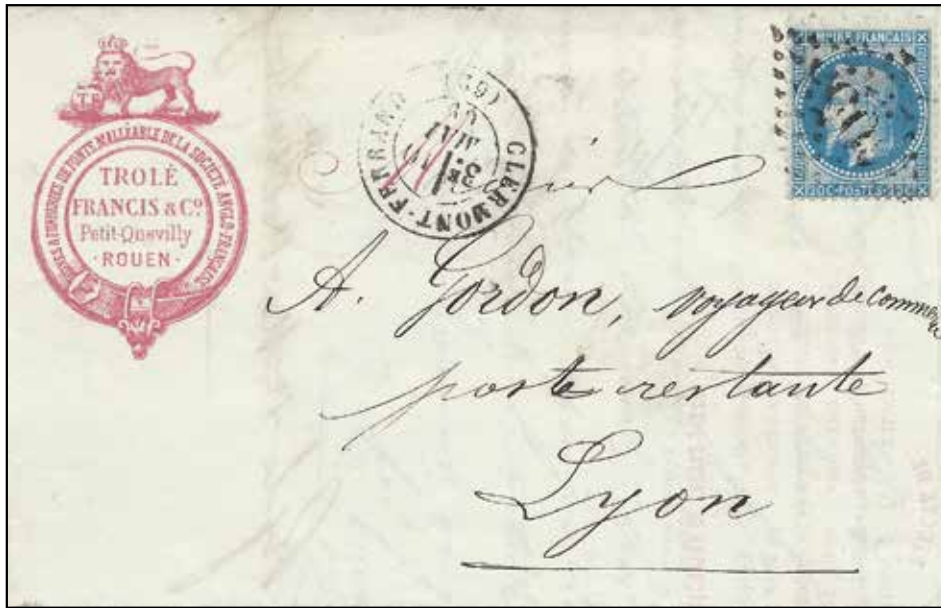 T.F.
USINES & FONDERIES DE FONTE MALLÉABLE DE LA SOCIÉTÉ ANGLO-FRANÇAISE
TROLÉ
FRANCIS & Cº
Petit-Quevilly
·ROUEN·
CLERMONT-FERRAND (63)
MAI
EMPIRE FRANÇAIS
20C·POSTES·20C
A. Gordon, voyageur de commerce
poste restante
Lyon